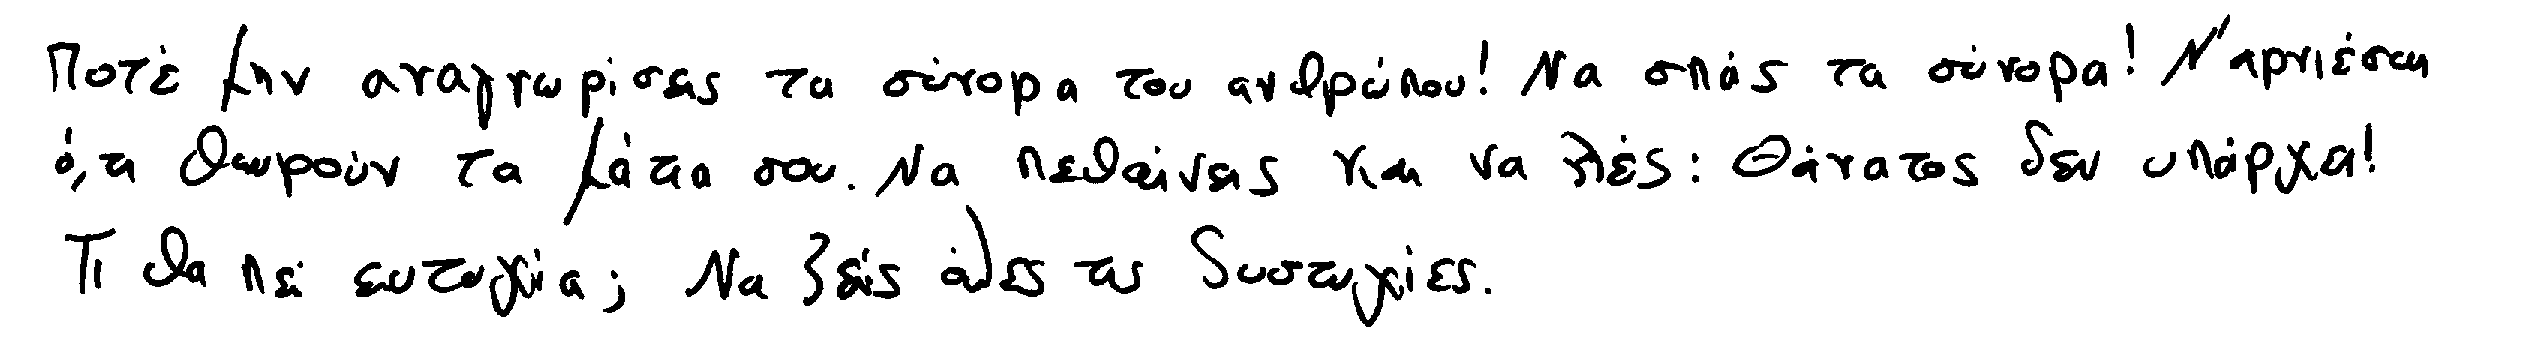 Ποτέ μην αναγνωρίσεις τα σύνορα του ανθρώπου! Να σπάς τα σύνορα! Ν'αρνιέσαι
ό,τι θωρούν τα μάτια σου. Να πεθαίνεις και να λές: Θάνατος δεν υπάρχει!
Τι θα πεί ευτυχία; Να ζείς όλες τις δυστυχίες.